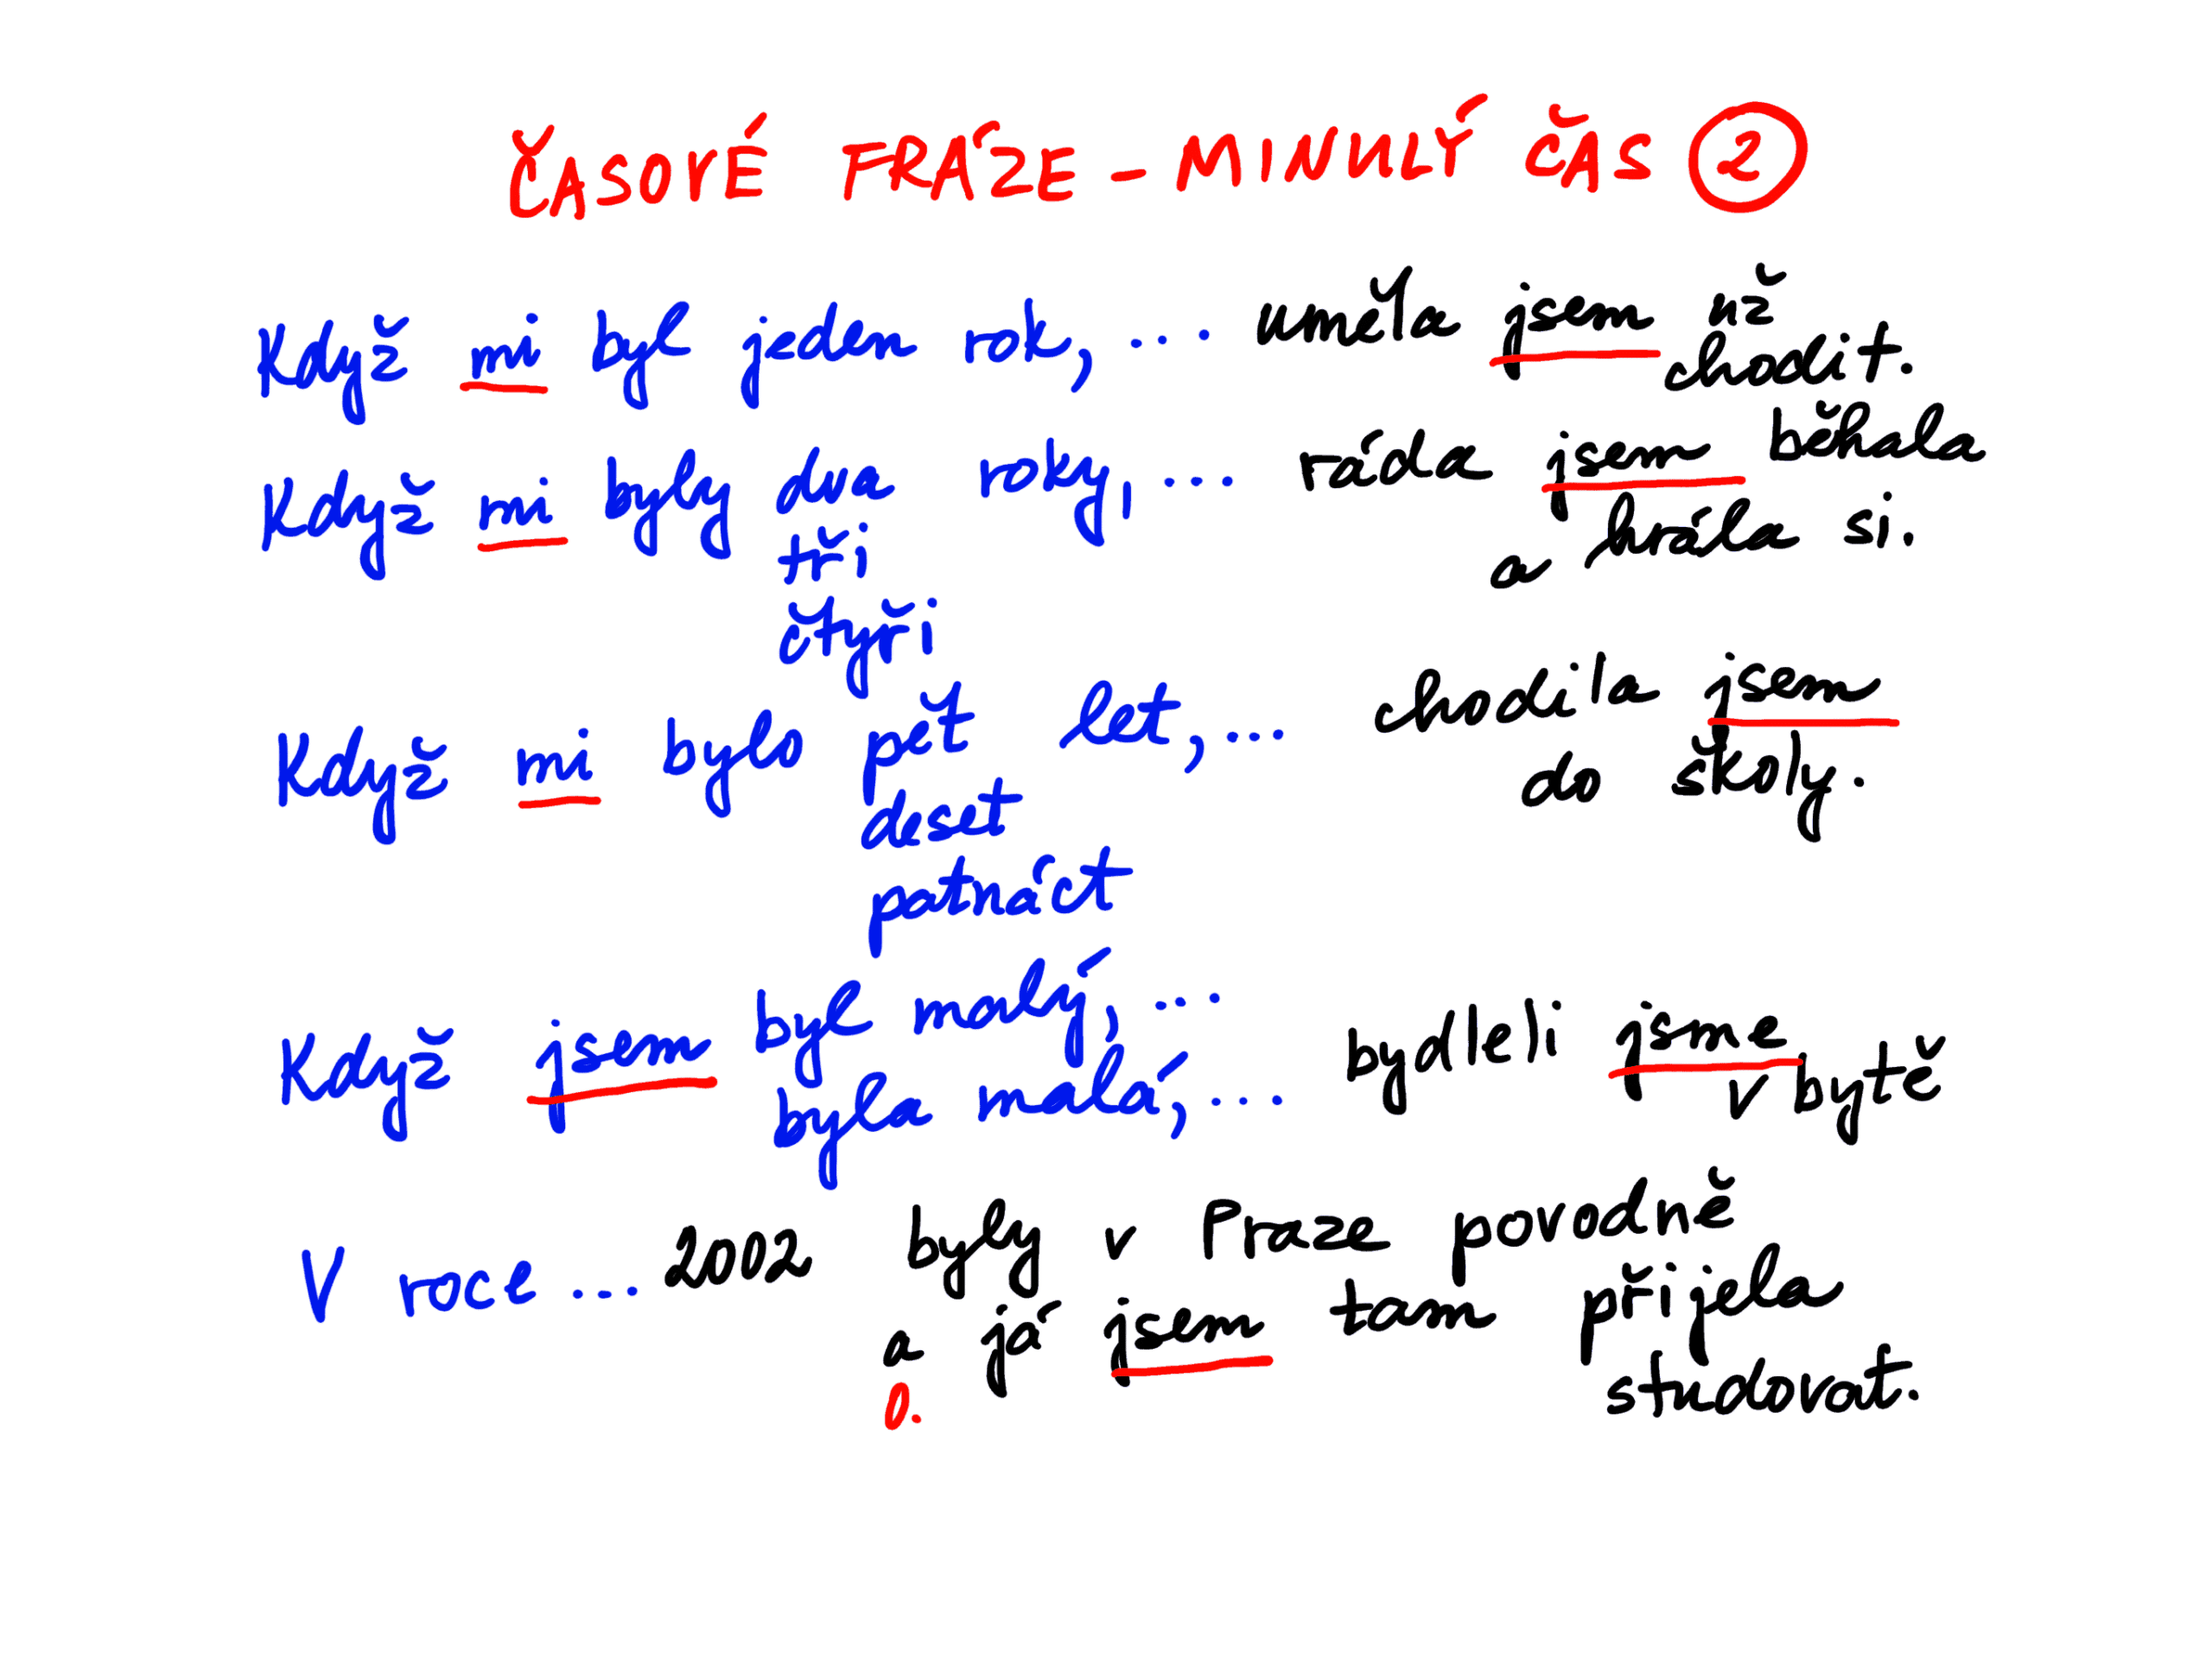 ČASOVÉ FRÁZE - MINULÝ ČAS 2
Když mi byl jeden rok, ... uměla jsem už
chodit.
Když mi byly dva roky, ... ráda jsem běhala
tři
a hrála si.
čtyři
Když mi bylo pět let, ... chodila jsem
do školy.
deset
patnáct
Když jsem byl malý, ...
byla malá, ...
bydleli jsme
v bytě
V roce ... 2002 byly v Praze povodně
a já jsem tam přijela
0.
studovat.